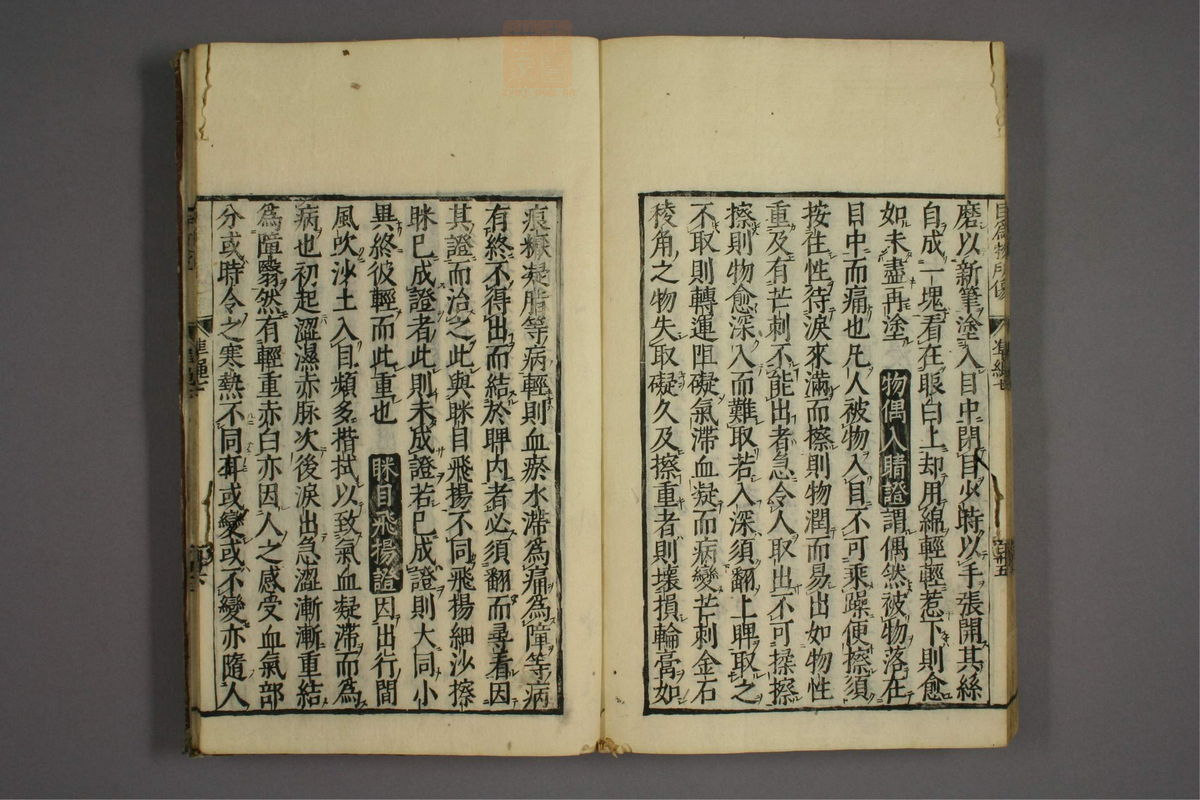 磨以新筆塗入目中閉目少時以手張開其絲
自成一塊看在眼白上却用綿輕輕惹下則愈
如未盡再塗 物偶入睛證謂偶然被物落在
目中而痛也凡人被物入目不可乘躁便擦須
按性待淚來滿而擦則物潤而易出如物性
重及有芒刺不能出者急令人取出不可揉擦
擦則物愈深入而難取若入深須翻上睥取之
不取則轉運阻礙氣滯血凝而病變芒刺金石
稜角之物失取礙久及擦重者則壞損輪膏如
痕凝脂等病輕則血瘀水滯爲痛爲障等病
有終不得出而結於睥內者必須翻而尋看因
其證而治之此與眯目飛揚不同飛揚細沙擦
眯已成證者此則未成證若已成證則大同小
異終彼輕而此重也 眯目飛揚證因出行間
風吹沙土入目頻多揩拭以致氣血凝滯而爲
病也初起澀濕赤脉次後淚出急澀漸漸重結
爲障翳然有輕重赤白亦因人之感受血氣部
分或時令之寒熱不同耳或變或不變亦隨人